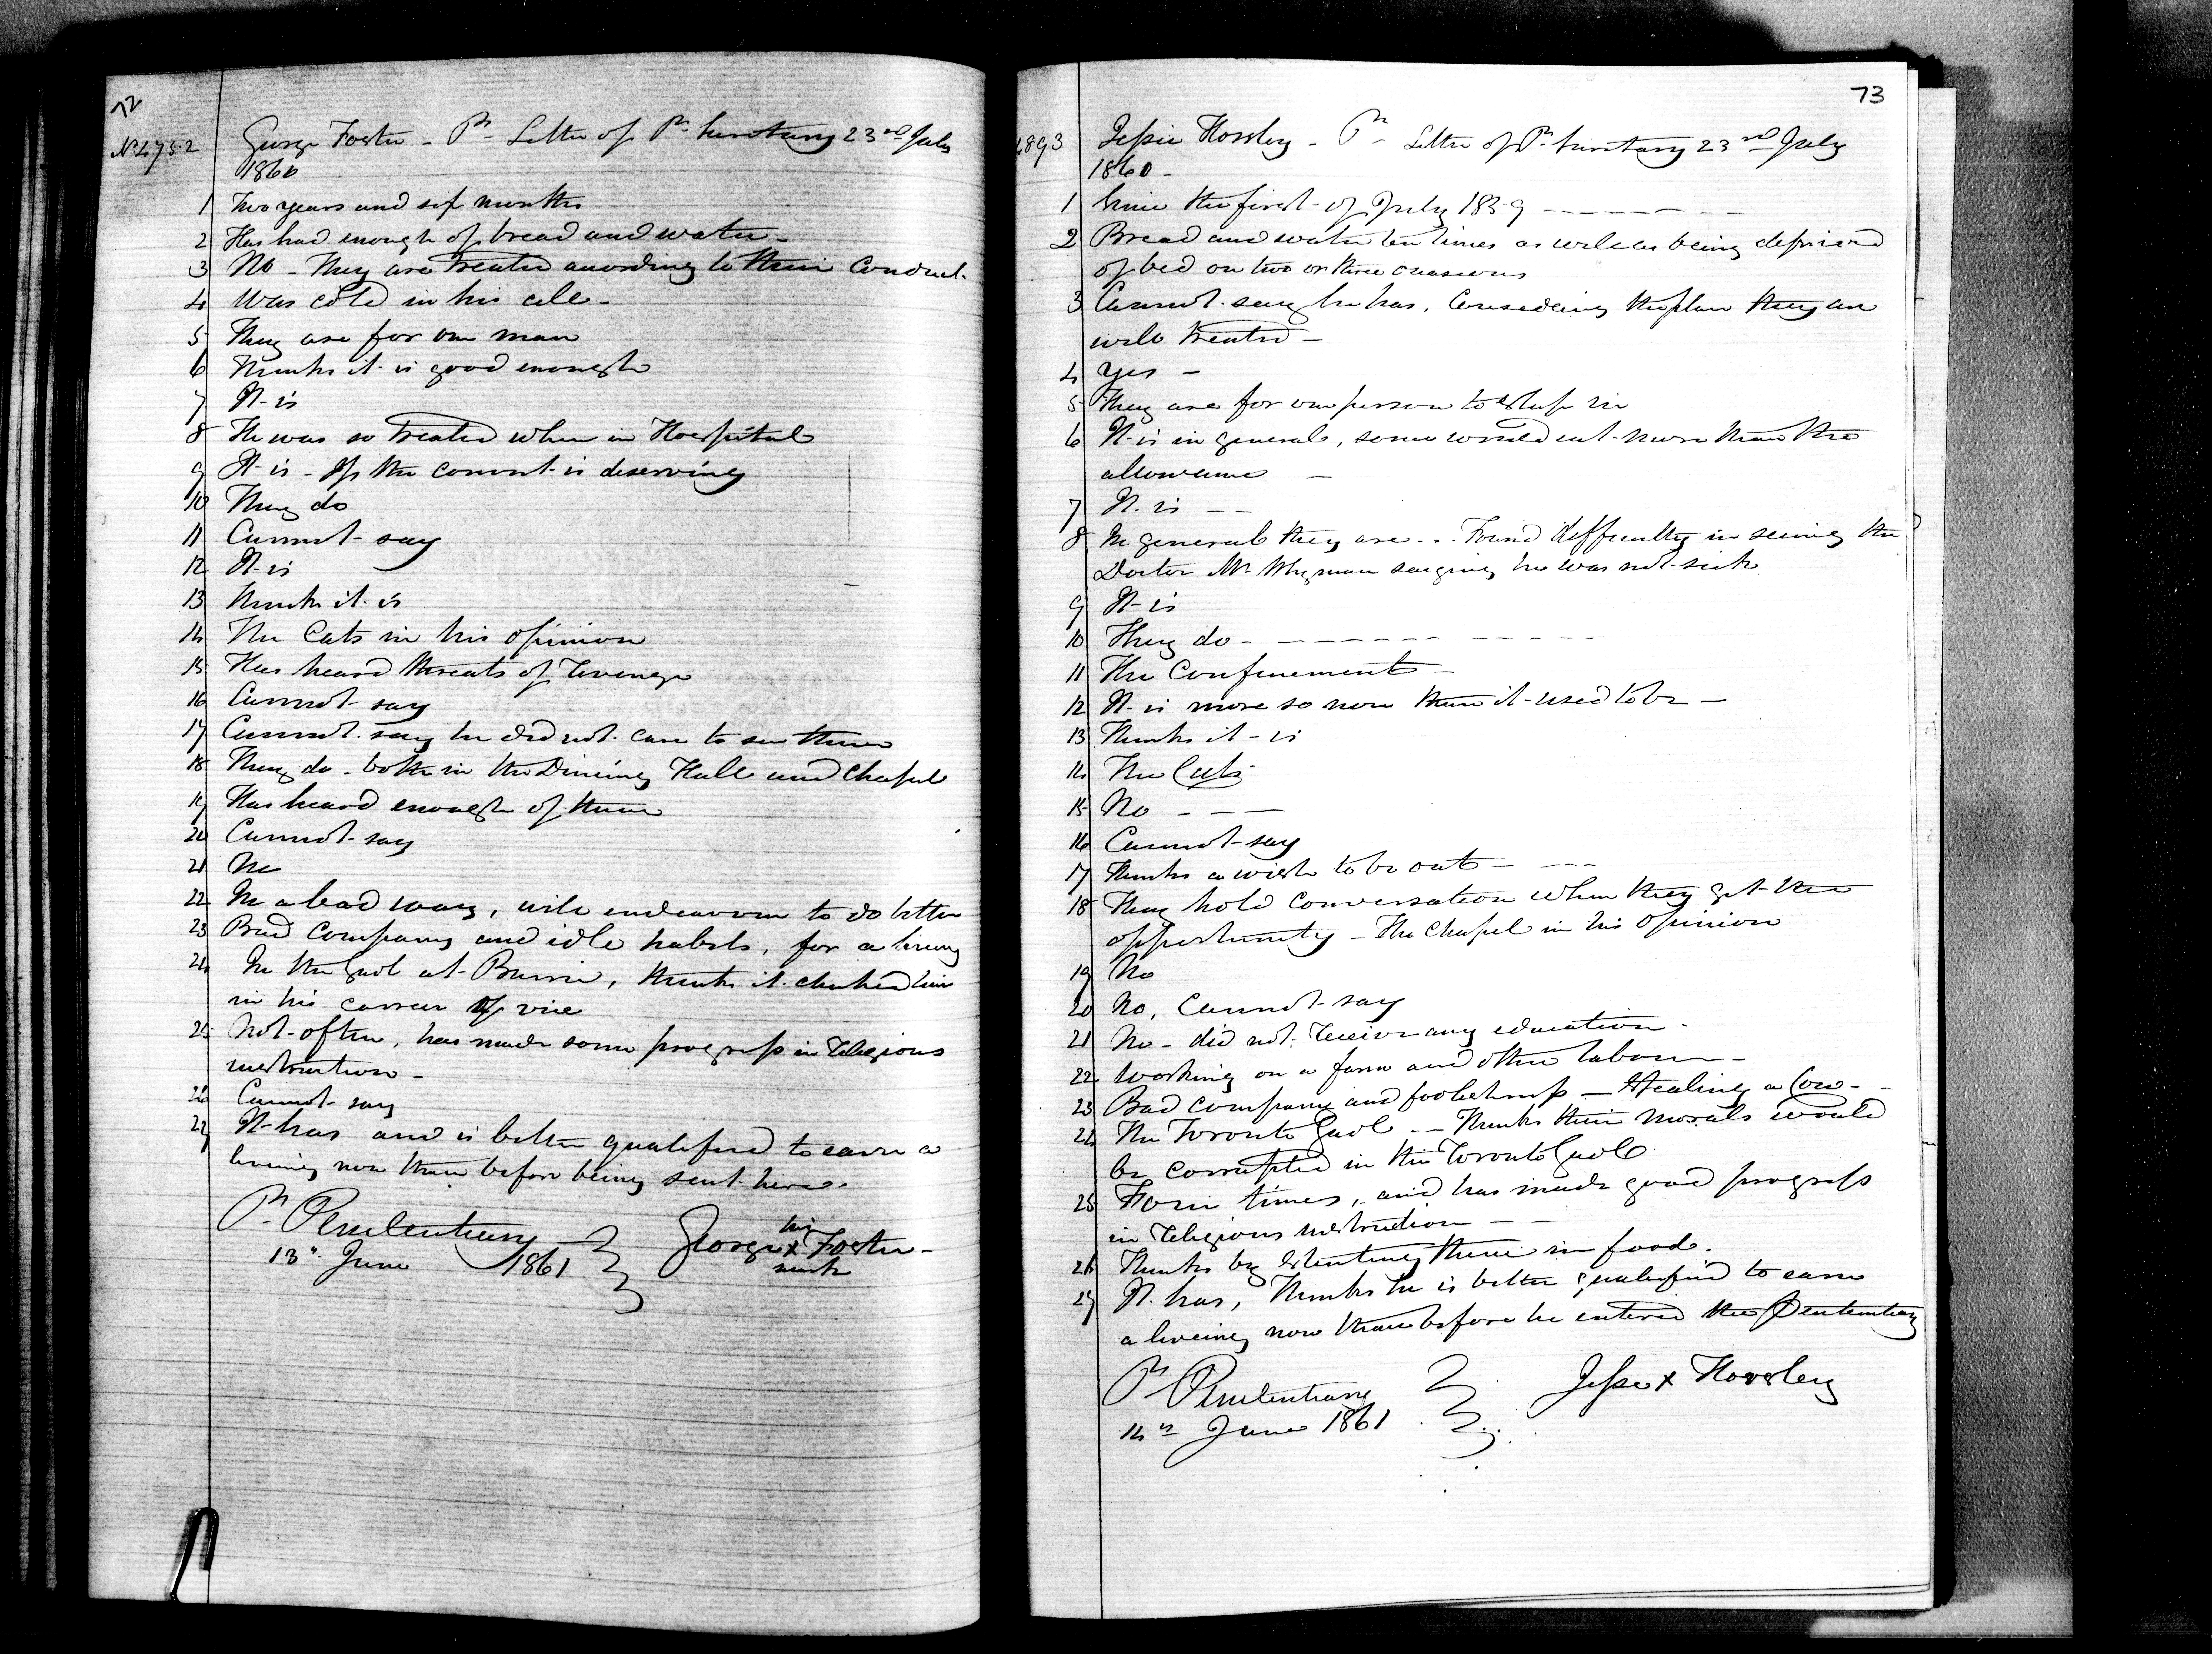 72
No 4752 George Foster - Pr Letter of Pr Secretary 23rd July
1860
1 Two years and six months
2 Has had enough of bread and water -
3 No - They are treated according to their Conduct.
4 Was cold in his cell -
5 They are for one man
6 Thinks it is good enough
7 It is
8 He was so treated when in Hospital
9 It is - If the convict is deserving
10 They do
11 Cannot say
12 It is
13 Thinks it is
14 The Cats in his opinion
15 Has heard threats of revenge
16 Cannot say
17 Cannot say he did not care to see them
18 They do - both in the Dining Hall and Chapel
19 Has heard enough of them
20 Cannot say
21 No
22 In a bad way, will endeavour to do better
23 Bad Company and idle habits, for a living
24 In the Gaol at Barrie, thinks it checked him
in his career of vice
25 Not often, has made some progress in religious
instruction -
26 Cannot say
27 It has and is better qualified to earn a
living now than before being sent here.
Pr Penitentiary
13th June 1861
his
George x Foster -
mark
73
4893 Jessie Horsley - Pr Letter of Pr Secretary 23rd July
1860 -
1 Since the first of July 1859
2 Bread and water ten times as well as being deprived
of bed on two or three occasions
3 Cannot say he has, Considering the place they are
well treated -
4 Yes -
5 They are for one person to sleep in
6 It is in general, some would eat more than the
allowance -
7 It is - -
8 In general they are - - Found difficulty in seeing the
Doctor Mr Whyman saying he was not sick
9 It is
10 They do -
11 The Confinement -
12 It is more so now than it used to be -
13 Thinks it is
14 The Cats
15 No - - -
16 Cannot say
17 Thinks a wish to be out -
18 They hold conversation when they get the
opportunity - The Chapel in his opinion
19 No
20 No, Cannot say
21 No - did not receive any education -
22 Working on a farm and other labour -
23 Bad company and foolishness - Stealing a Cow -
24 The Toronto Gaol - - Thinks their morals would
be corrupted in the Toronto Gaol
25 Four times, and has made good progress
in religious instruction - -
26 Thinks by stenting them in food.
27 It has, Thinks he is better qualified to earn
a liveing now than before he entered the Penitentiary
Pr Penitentiary
14th June 1861
Jesse x Horsley